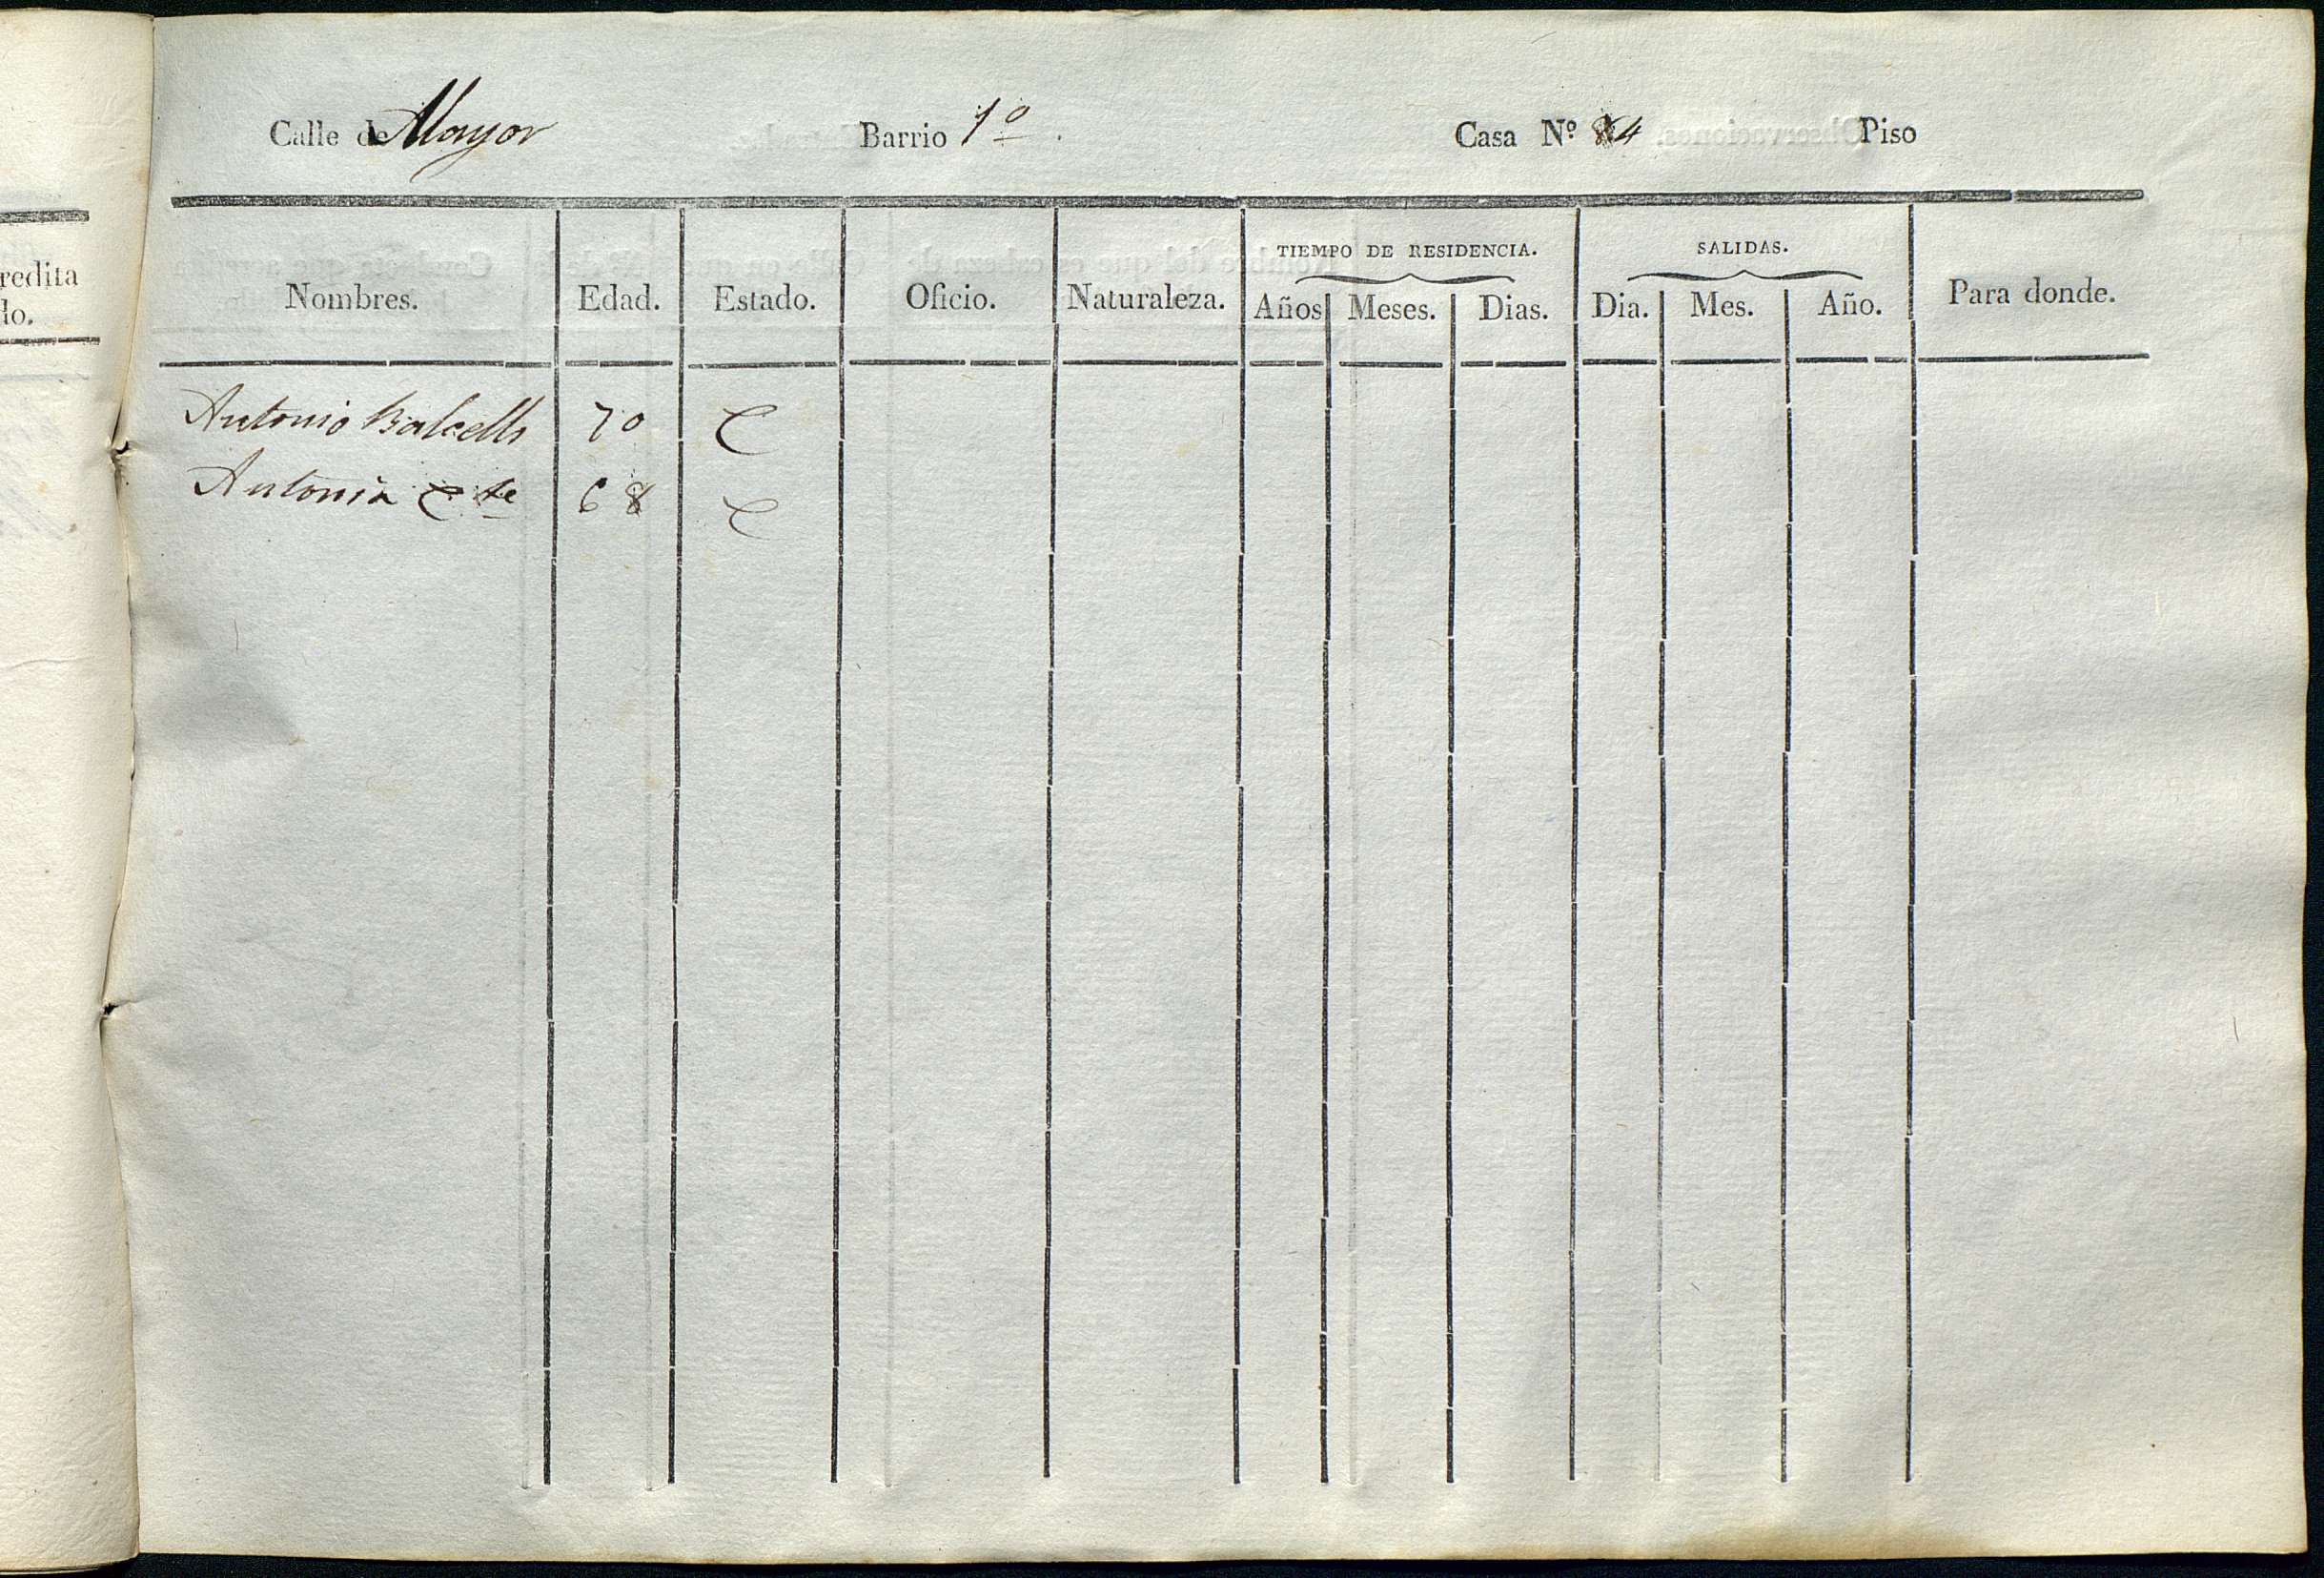 redita
do.
Calle de Mayor Barrio 1º Casa Nº 84 Piso
TIEMPO DE RESIDENCIA. SALIDAS.
Nombres. Edad. Estado. Oficio. Naturaleza. Años Meses. Dias. Dia. Mes. Año. Para donde.
Antonio Balcells 70 C
Antonia C te 68 C